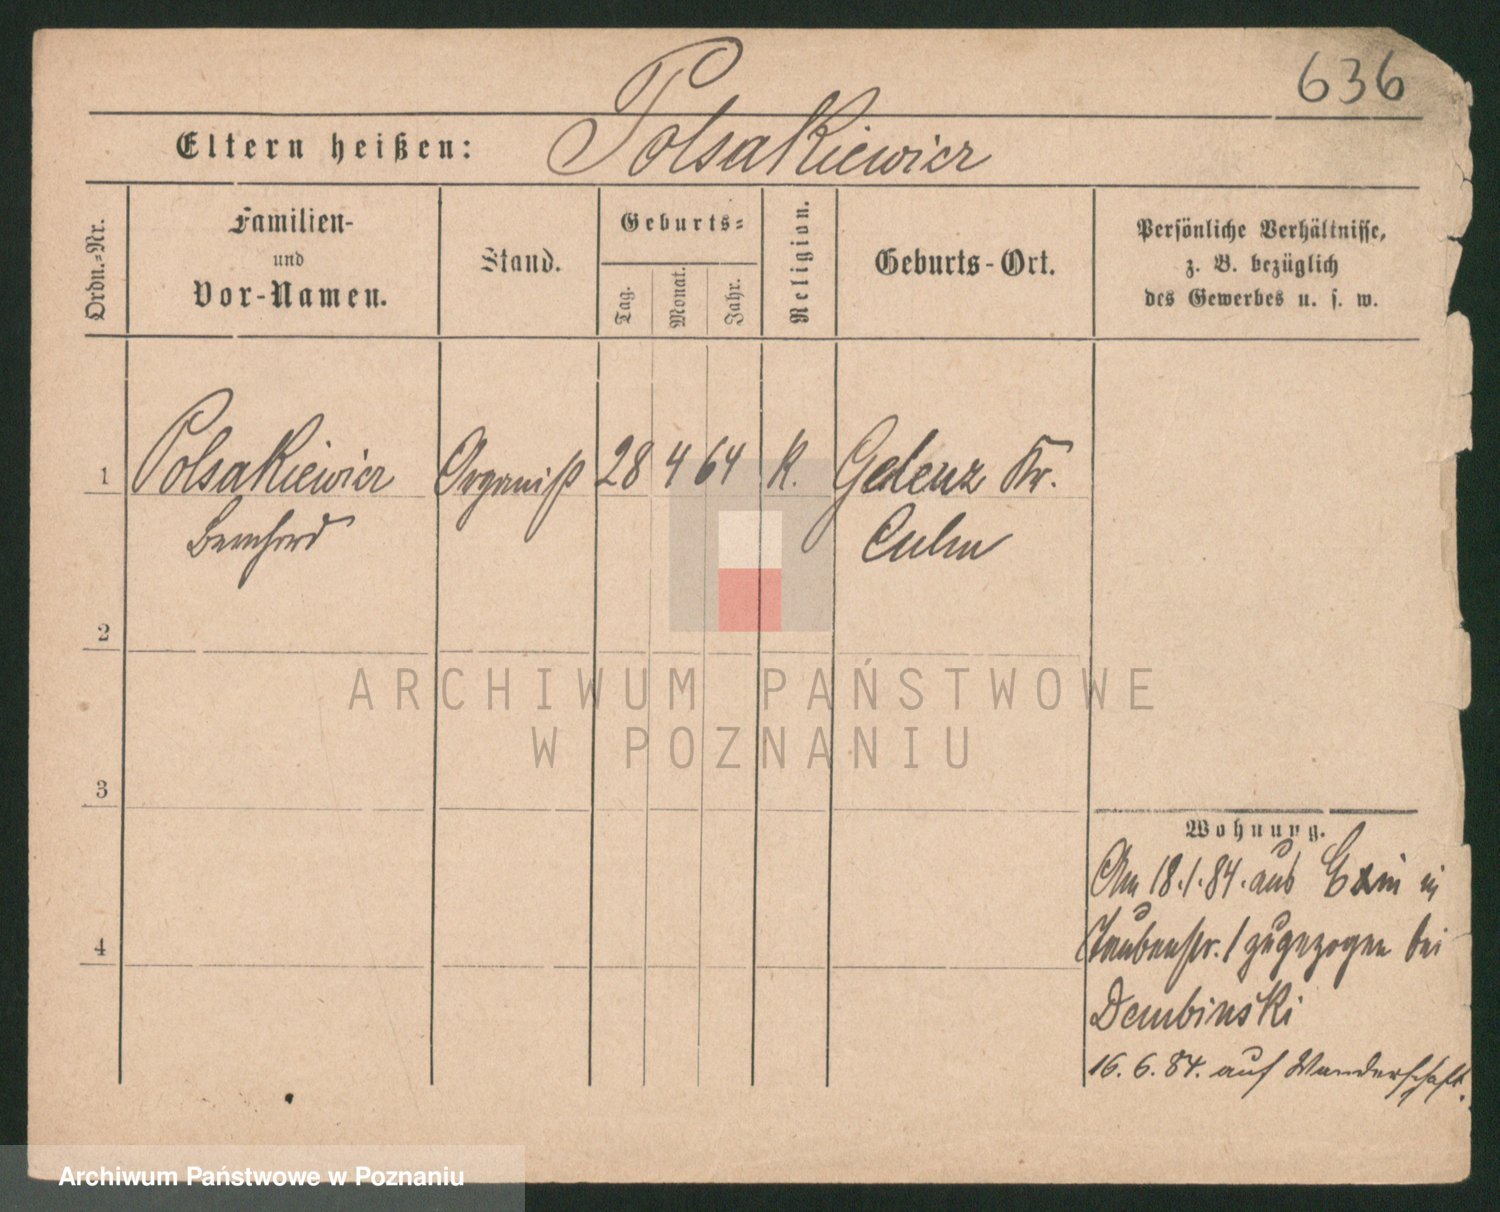 636
Polsakiewicz
Eltern heißen:
Ordn.-Nr.
Familien-
und
Vor-Namen.
Stand.
Geburts-
Tag.
Monat.
Jahr.
Religion.
Geburts-Ort.
Persönliche Verhältnisse,
z. B. bezüglich
des Gewerbes u. s. w.
1 Polsakiewicz Organist 28 4 64 K. Gelenz Kr.
Bernhard Culm
2
ARCHIWUM PAŃSTWOWE
W POZNANIU
3
Wohnung.
Am 18.1.84. aus Exin in
Taubenstr. 1 zugezogen bei
4
Dembinski
16. 6. 84. auf Wanderschaft.
Archiwum Państwowe w Poznaniu